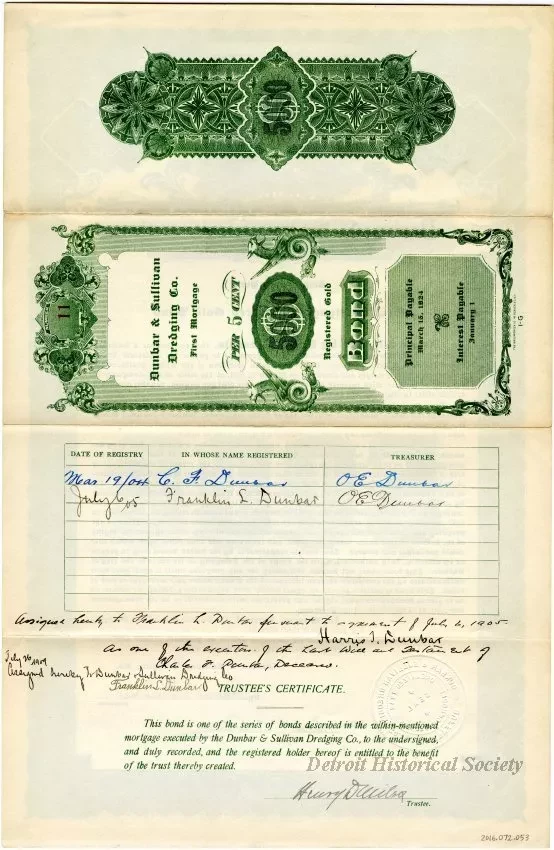 5000
11
Dunbar & Sullivan
Dredging Co.
First Mortgage
5 PER CENT
5000
Registered Gold
Bond
Principal Payable
March 15, 1924
Interest Payable
January 1
DATE OF REGISTRY IN WHOSE NAME REGISTERED TREASURER
Mar 19/04 C. F. Dunbar O E Dunbar
July 6/05 Franklin L. Dunbar O E Dunbar
Assigned hereby to Franklin L. Dunbar pursuant to agreement of July 6, 1905.
Harris T. Dunbar
As one of the executors of the Last Will and Testament of
Charles F. Dunbar, Deceased.
July 26 1909
Assigned hereby to Dunbar & Sullivan Dredging Co
Franklin L. Dunbar
TRUSTEE'S CERTIFICATE.
This bond is one of the series of bonds described in the within-mentioned
mortgage executed by the Dunbar & Sullivan Dredging Co., to the undersigned,
and duly recorded, and the registered holder hereof is entitled to the benefit
of the trust thereby created.
Detroit Historical Society
Henry
Trustee.
2016.072.053